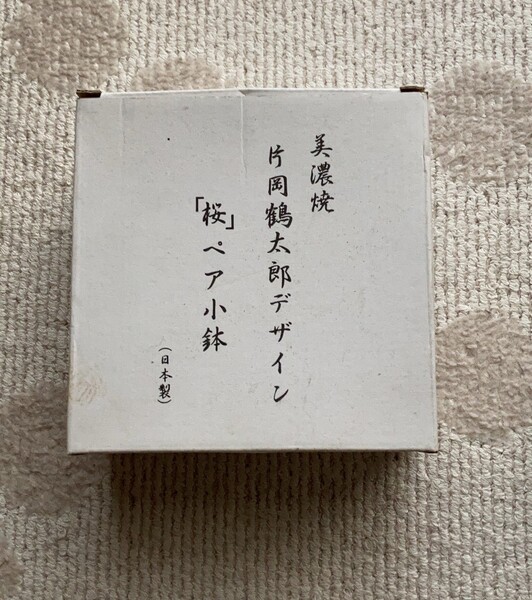 美濃焼
片岡鶴太郎デザイン
「桜」ペア小鉢
（日本製）